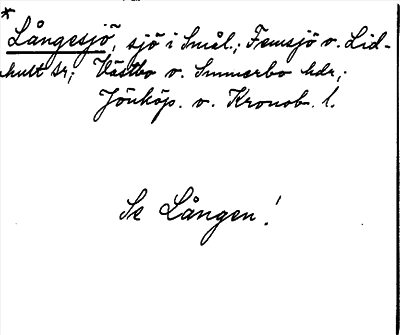 *
Långesjö, sjö i Smål.; Femsjö o. Lid-
hult sr; Västbo o. Sunnerbo hdr;
Jönköp. o. Kronob. l.
Se Lången!